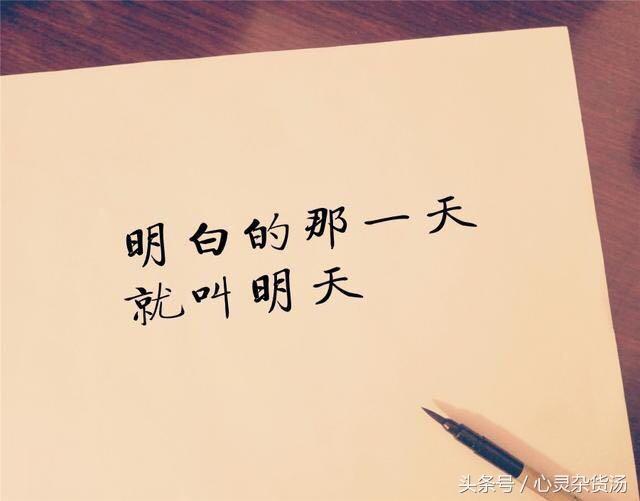 明白的那一天
就叫明天
头条号／心灵杂货汤